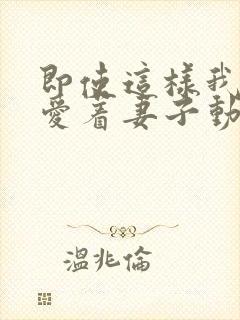 即使這樣我
愛着妻子動
溫兆倫